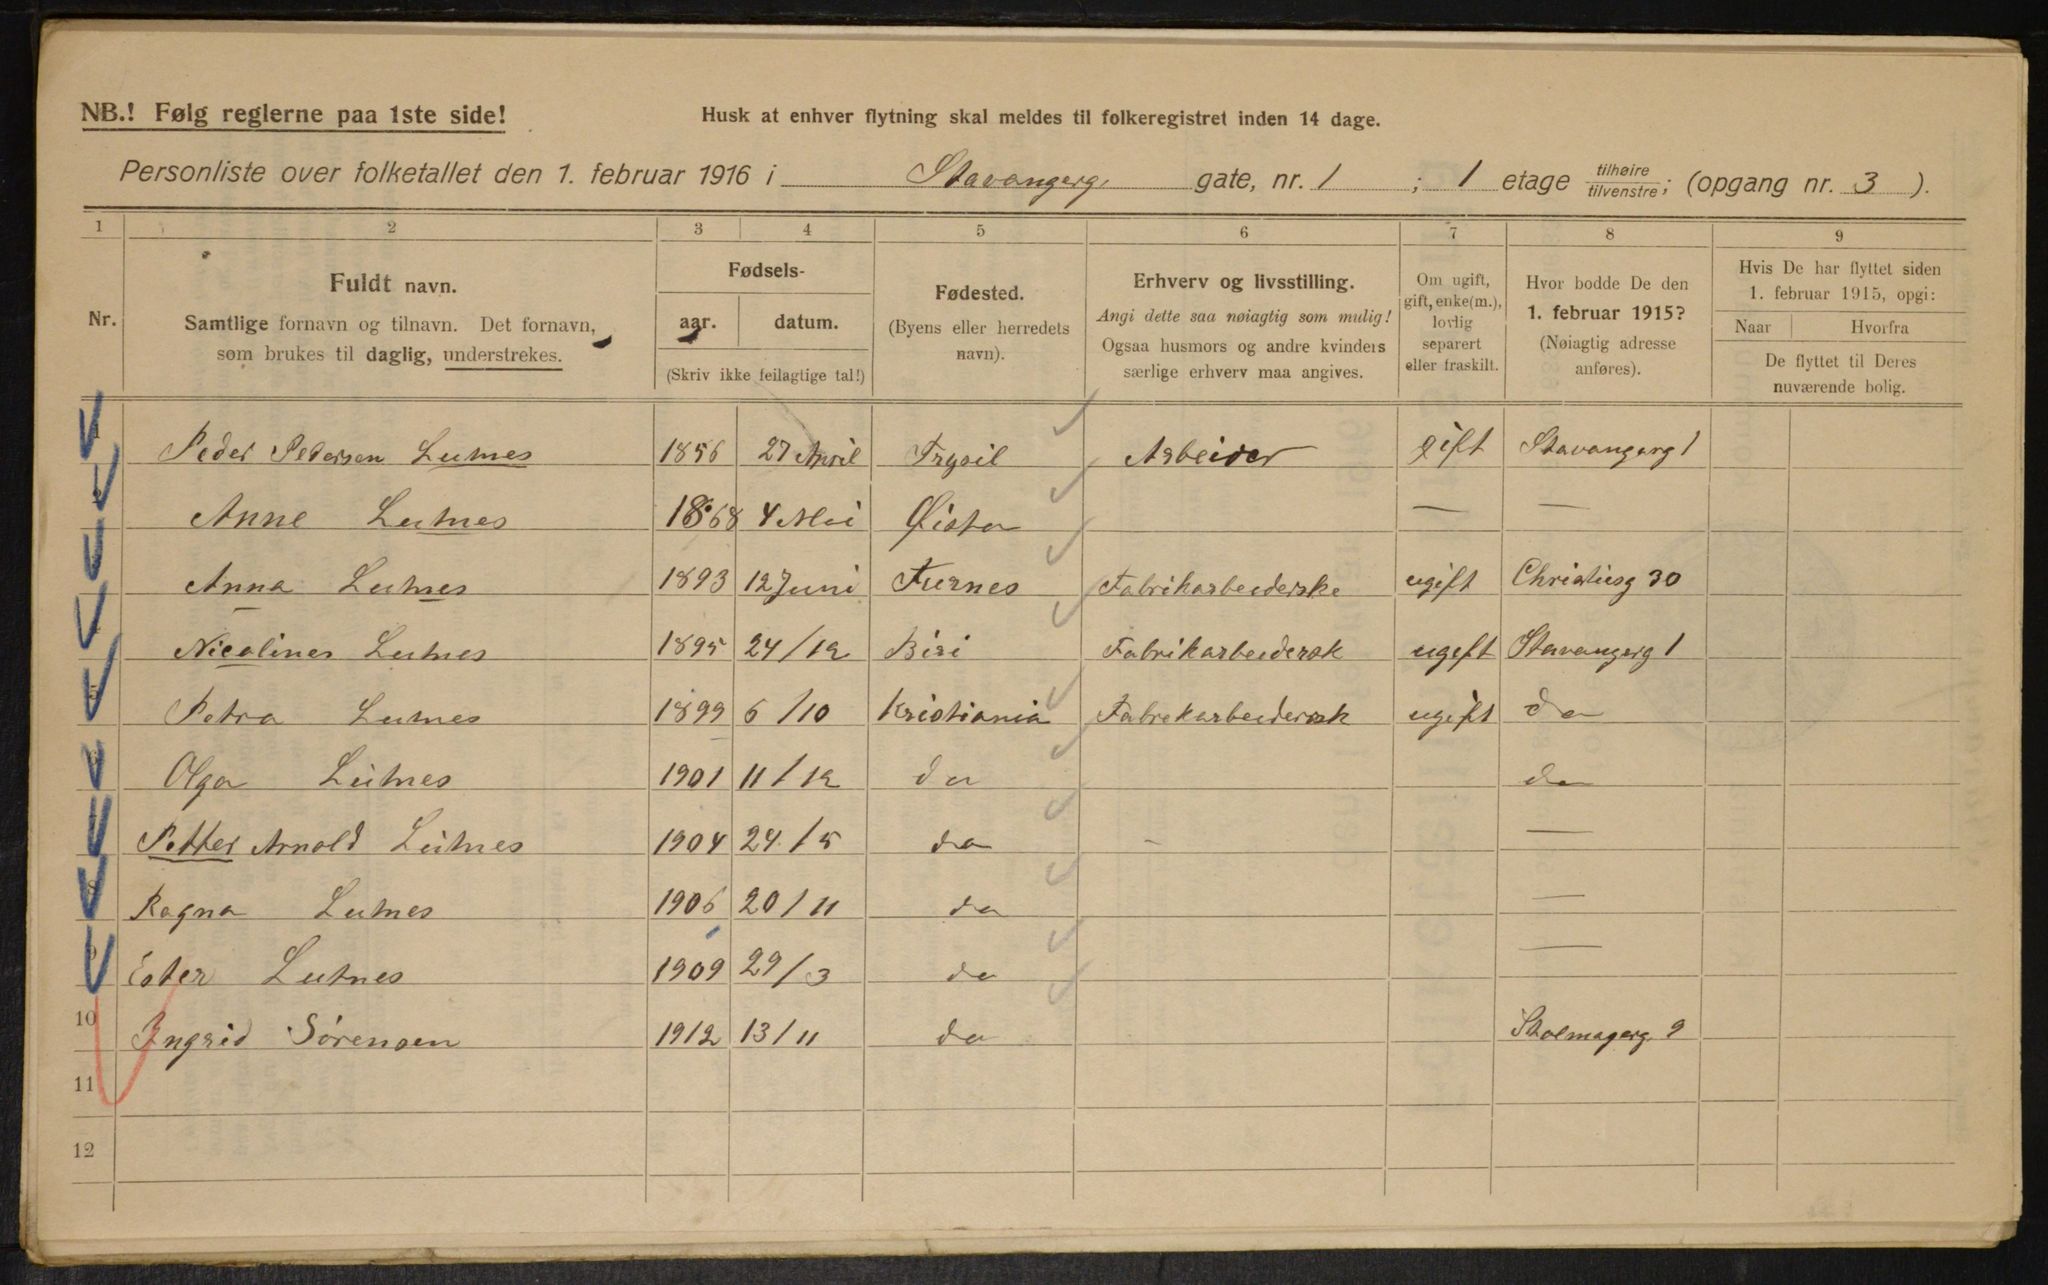 NB.! Følg reglerne paa 1ste side!
Husk at enhver flytning skal meldes til folkeregistret inden 14 dage.
Personliste over folketallet den 1. februar 1916 i Stavangerg. gate, nr. 1 ; 1 etage tilhøire/tilvenstre; (opgang nr. 3 ).
1 2 3 4 5 6 7 8 9
Nr.
Fuldt navn.
Samtlige fornavn og tilnavn. Det fornavn,
som brukes til daglig, understrekes.
Fødsels-
aar. datum.
(Skriv ikke feilagtige tal!)
Fødested.
(Byens eller herredets
navn).
Erhverv og livsstilling.
Angi dette saa nøiagtig som mulig!
Ogsaa husmors og andre kvinders
særlige erhverv maa angives.
Om ugift,
gift, enke(m.),
lovlig
separert
eller fraskilt.
Hvor bodde De den
1. februar 1915?
(Nøiagtig adresse
anføres).
Hvis De har flyttet siden
1. februar 1915, opgi:
Naar Hvorfra
De flyttet til Deres
nuværende bolig.
Peder Pedersen Lutnes 1856 27 April Trysil Arbeider gift Stavangerg 1
Anne Lutnes 1868 4 Mai — —
Anna Lutnes 1893 12 Juni Furnes Fabrikarbeiderske ugift Christiesg 30
Nicoline Lutnes 1895 24/12 Biri Fabrikarbeidersk ugift Stavangerg 1
5 Petra Lutnes 1899 6/10 Kristiania Fabrikarbeidersk ugift do
Olga Lutnes 1901 11/12 do do
Petter Arnold Lutnes 1904 24/5 do - —
8 Ragna Lutnes 1906 20/11 do —
9 Ester Lutnes 1909 29/3 do —
10 Ingrid Sørensen 1912 13/11 do 9
11
12